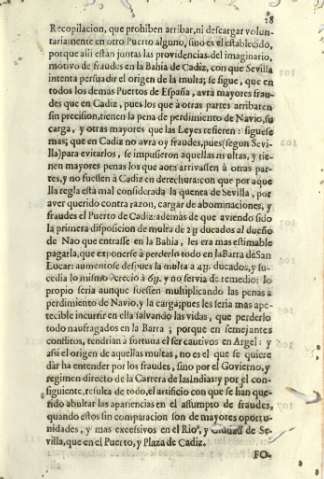 18
Recopilacion, que prohiben arribar, ni descargar volun-
tariamente en otro Puerto alguno, sino es el establecido,
porque alli están juntas las providencias del imaginario,
motivo de fraudes en la Bahia de Cadiz, con que Sevilla
intenta persuadir el origen de la multa; se sigue, que en
todos los demas Puertos de España, avrà mayores frau-
des que en Cadiz, pues los que à otras partes arribaren
sin precision, tienen la pena de perdimiento de Navio, su
carga, y otras mayores que las Leyes refieren: siguese
mas; que en Cadiz no avrà oy fraudes, pues (segun Sevi-
lla) para evitarlos, se impusieron aquellas multas, y tie-
nen mayores penas los que aora arrivassen à otras par-
tes, y no fuessen à Cadiz en derechura: con que por aque
lla regla està mal considerada la quenta de Sevilla, por
aver querido contra razon, cargar de abominaciones, y
fraudes el Puerto de Cadiz: ademàs de que aviendo sido
la primera disposicion de multa de 2U ducados al dueño
de Nao que entrasse en la Bahia, les era mas estimable
pagarla, que exponerse à perderlo todo en la Barra de San
Lucar: aumentose despues la multa a 4U. ducados, y su-
cedia lo mismo: creció à 6U. y no servia de remedio: lo
propio seria aunque fuessen multiplicando las penas à
perdimiento de Navio, y la carga; pues les seria mas ape-
tecible incurrir en ella salvando las vidas, que perderlo
todo naufragados en la Barra; porque en semejantes
conflitos, tendrian à fortuna el ser cautivos en Argel: y
assi el origen de aquellas multas, no es el que se quiere
dar ha entender por los fraudes, sino por el Govierno, y
regimen directo de la Carrera de las Indias: y por el con-
siguiente, resulta de todo, el artificio con que se han que-
rido abultar las apariencias en el assumpto de fraudes,
quando estos sin comparacion son de mayores oportu-
nidades, y mas excessivos en el Rio, y Ciudad de Se-
villa, que en el Puerto, y Plaza de Cadiz.
FO-